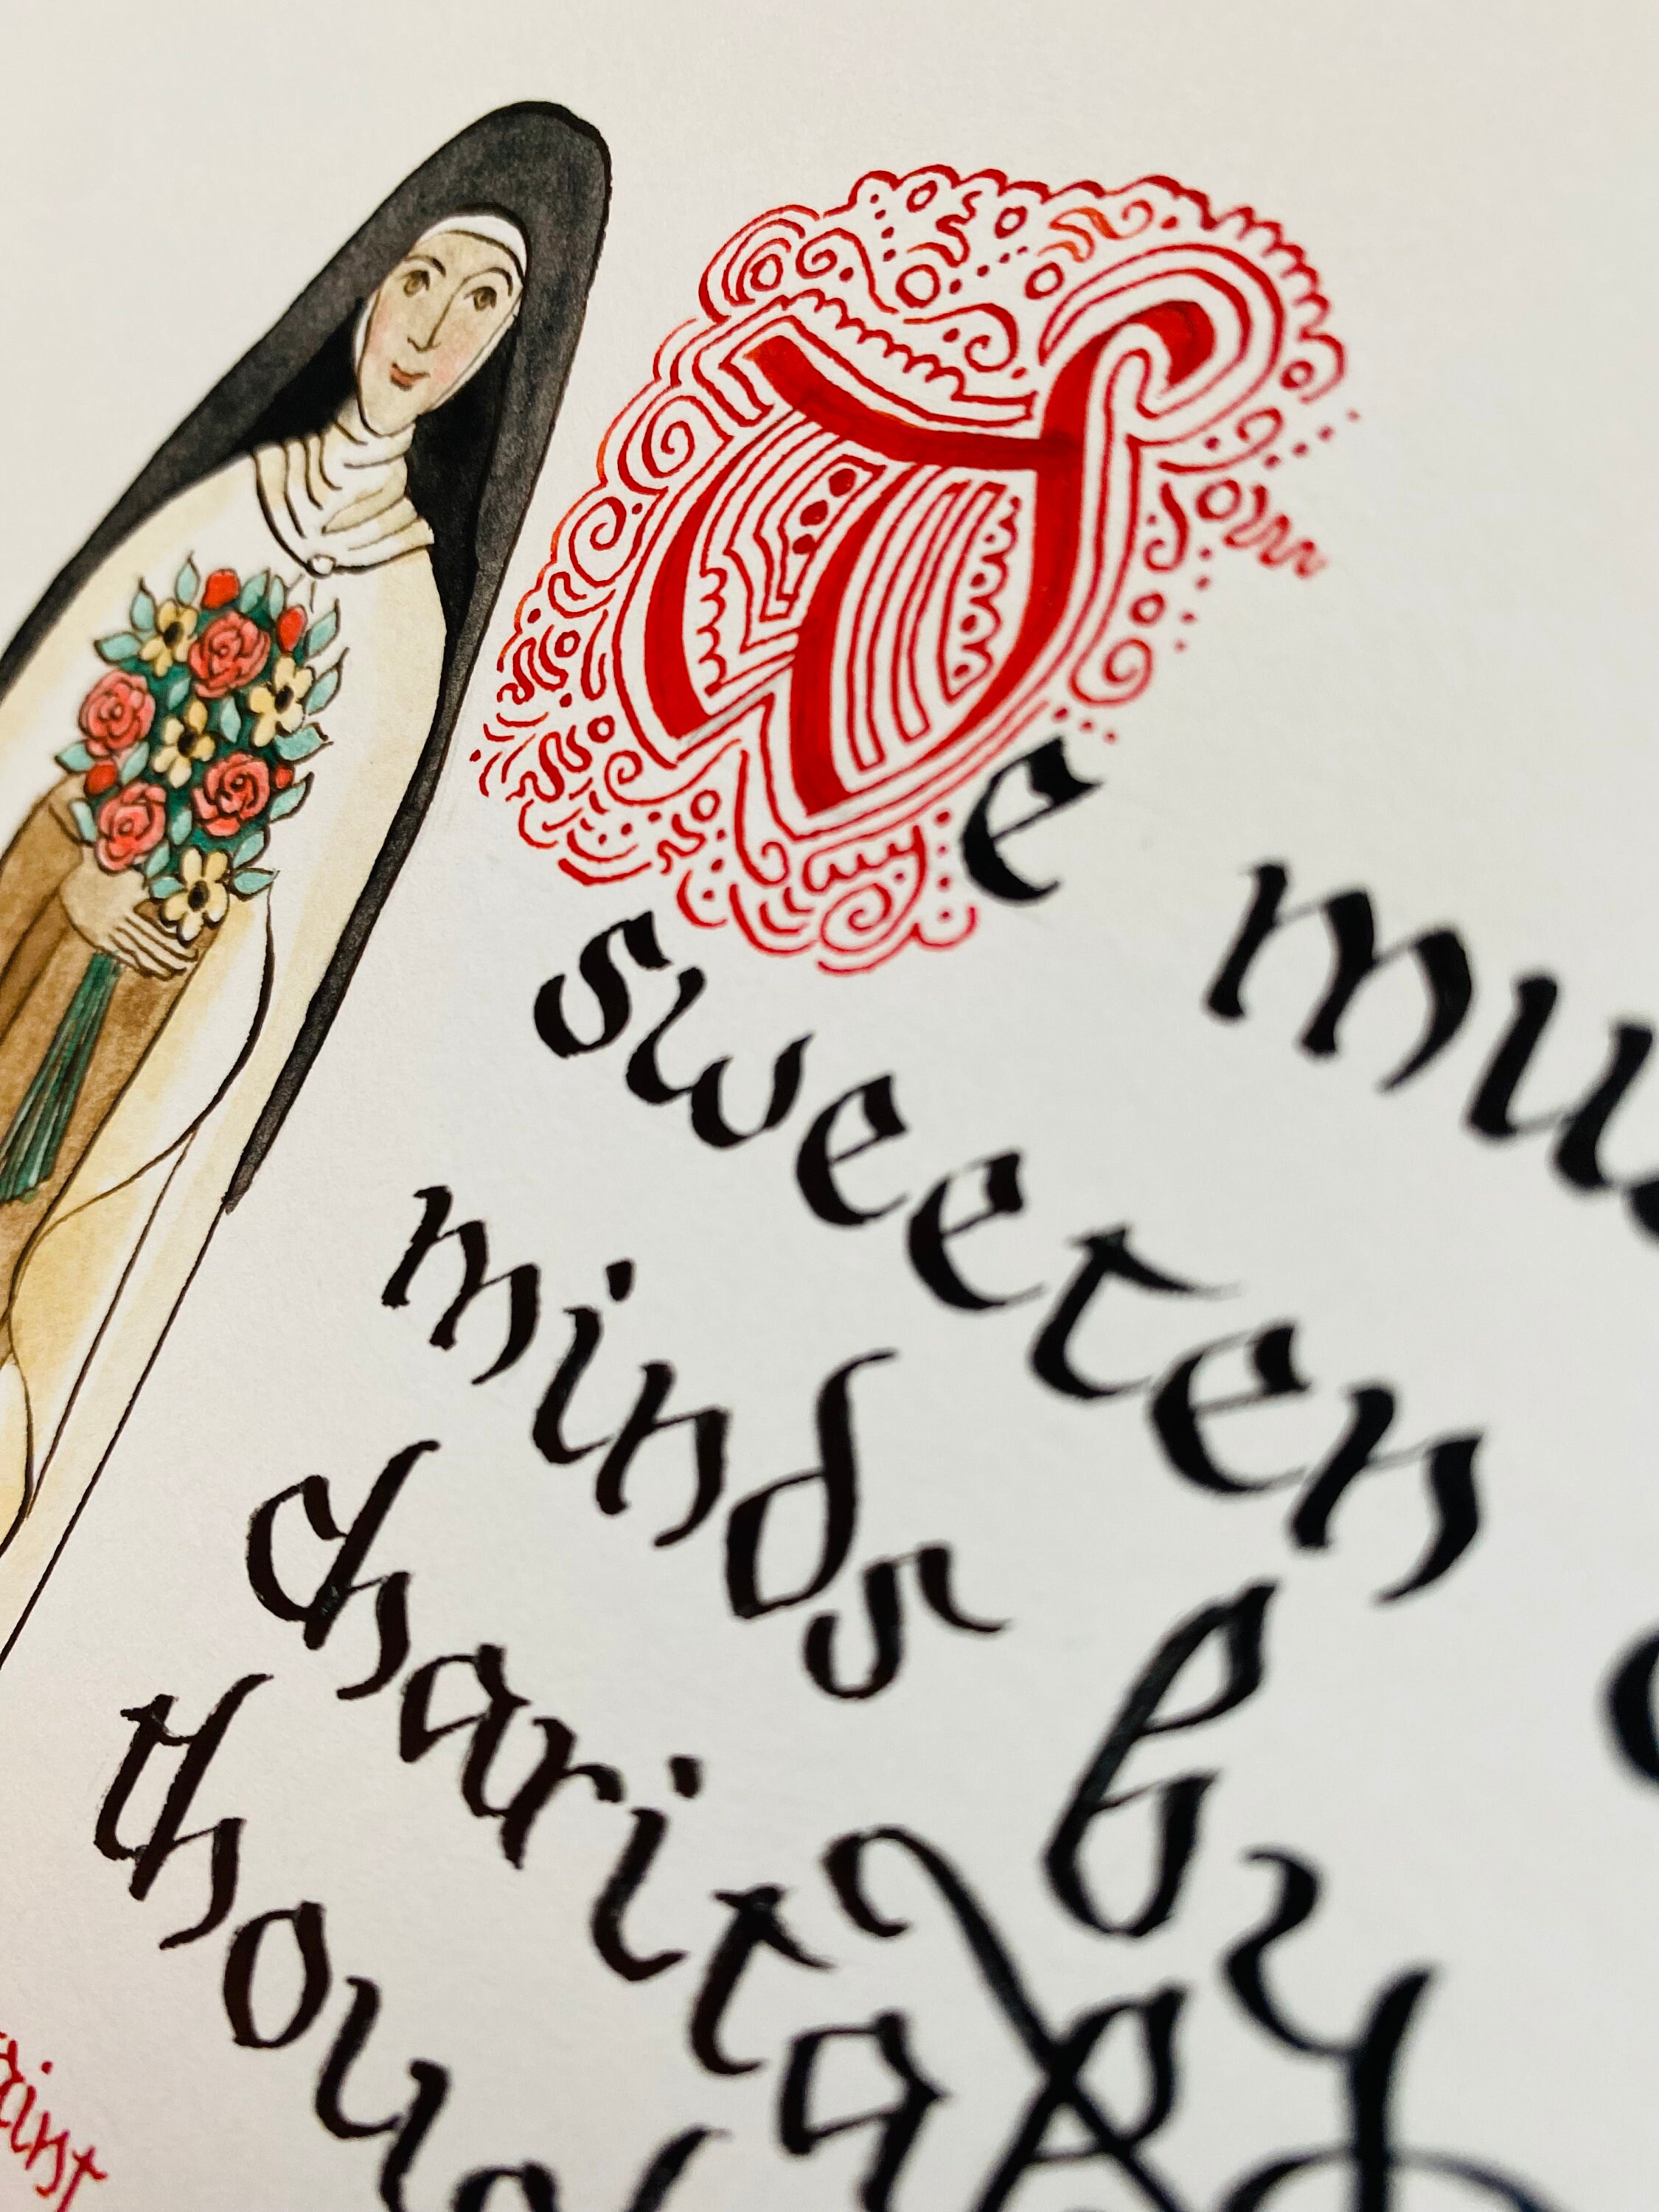 We mu
sweeten
minds by
charitab
though
aint